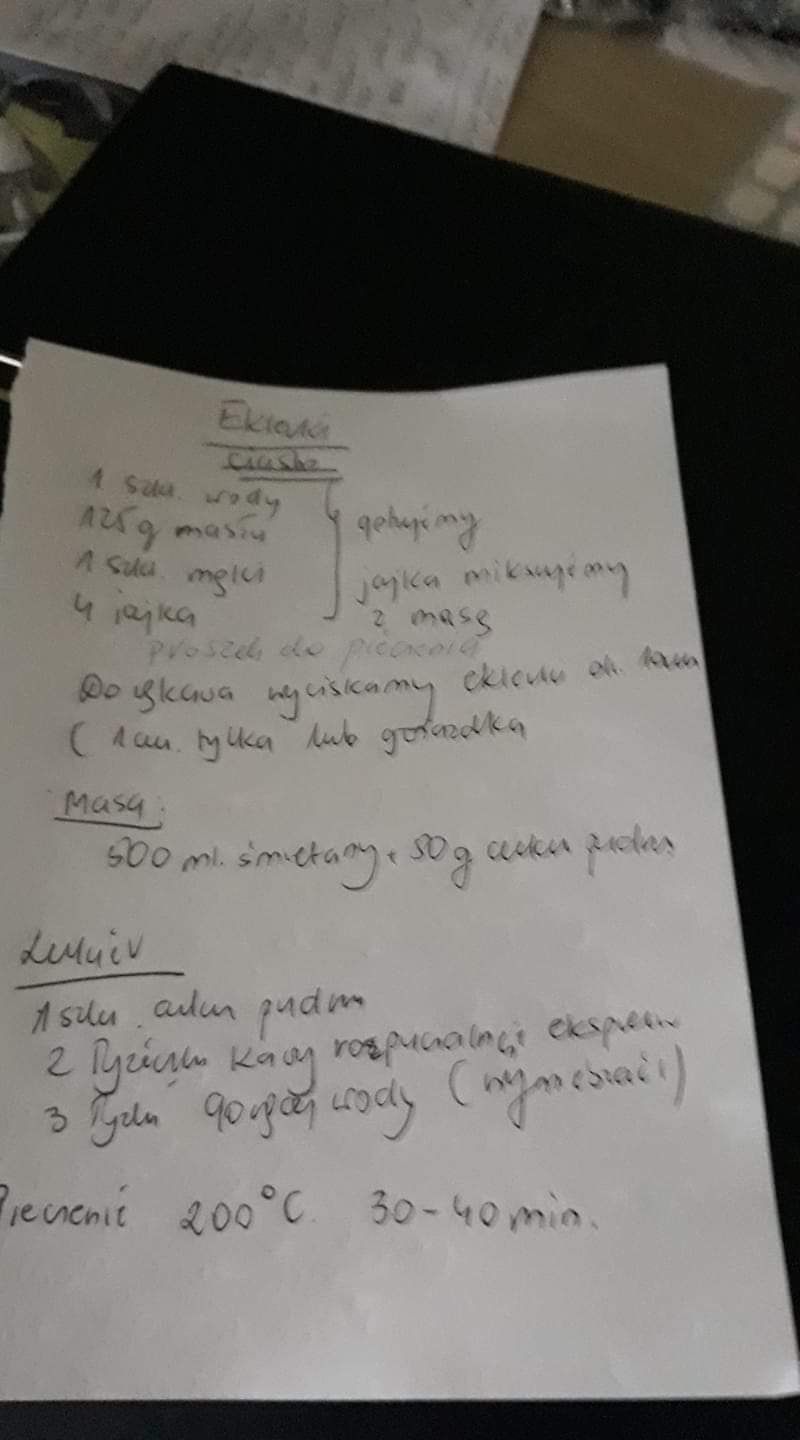 Eklerki
ciasto
1 szkl. wody
125g masła
gotujemy
1 szkl. mąki
jajka miksujemy
4 jajka
z masą
proszek do pieczenia
Do rękawa wyciskamy eklerki ok. 10cm
( 1cm. tylka lub gwiazdka
Masa:
500 ml. śmietany + 50g cukru pudru
Lukier
1 szkl. cukru pudru
2 łyżeczki kawy rozpuszczalnej
3 łyżki gorącej wody (wymieszać)
Pieczenie 200°C. 30-40 min.